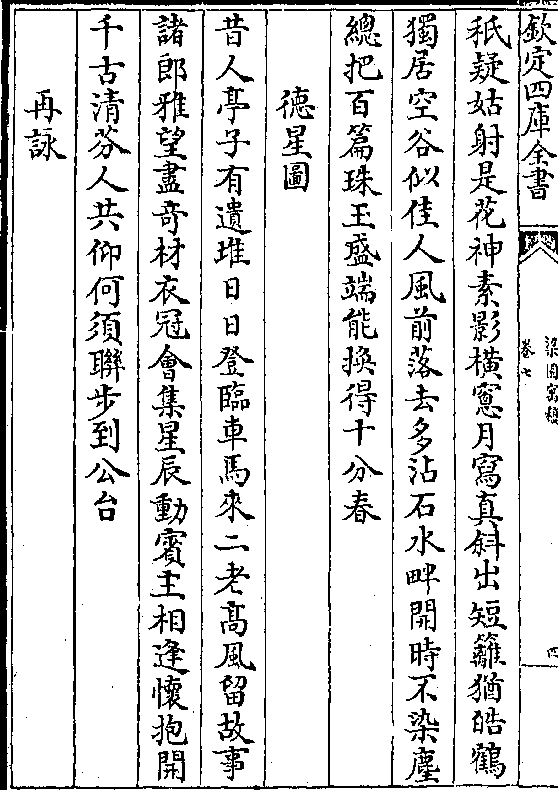 欽定四庫全書
卷七
四
秖疑姑射是花神素影橫窻月寫真斜出短籬猶皓鶴
獨居空谷似佳人風前落去多沾石水畔開時不染塵
總把百篇珠玉盛端能換得十分春
德星圖
昔人亭子有遺堆日日登臨車馬來二老高風留故事
諸郎雅望盡奇材衣冠會集星辰動賓主相逢懷抱開
千古清芬人共仰何須聯步到公台
再詠